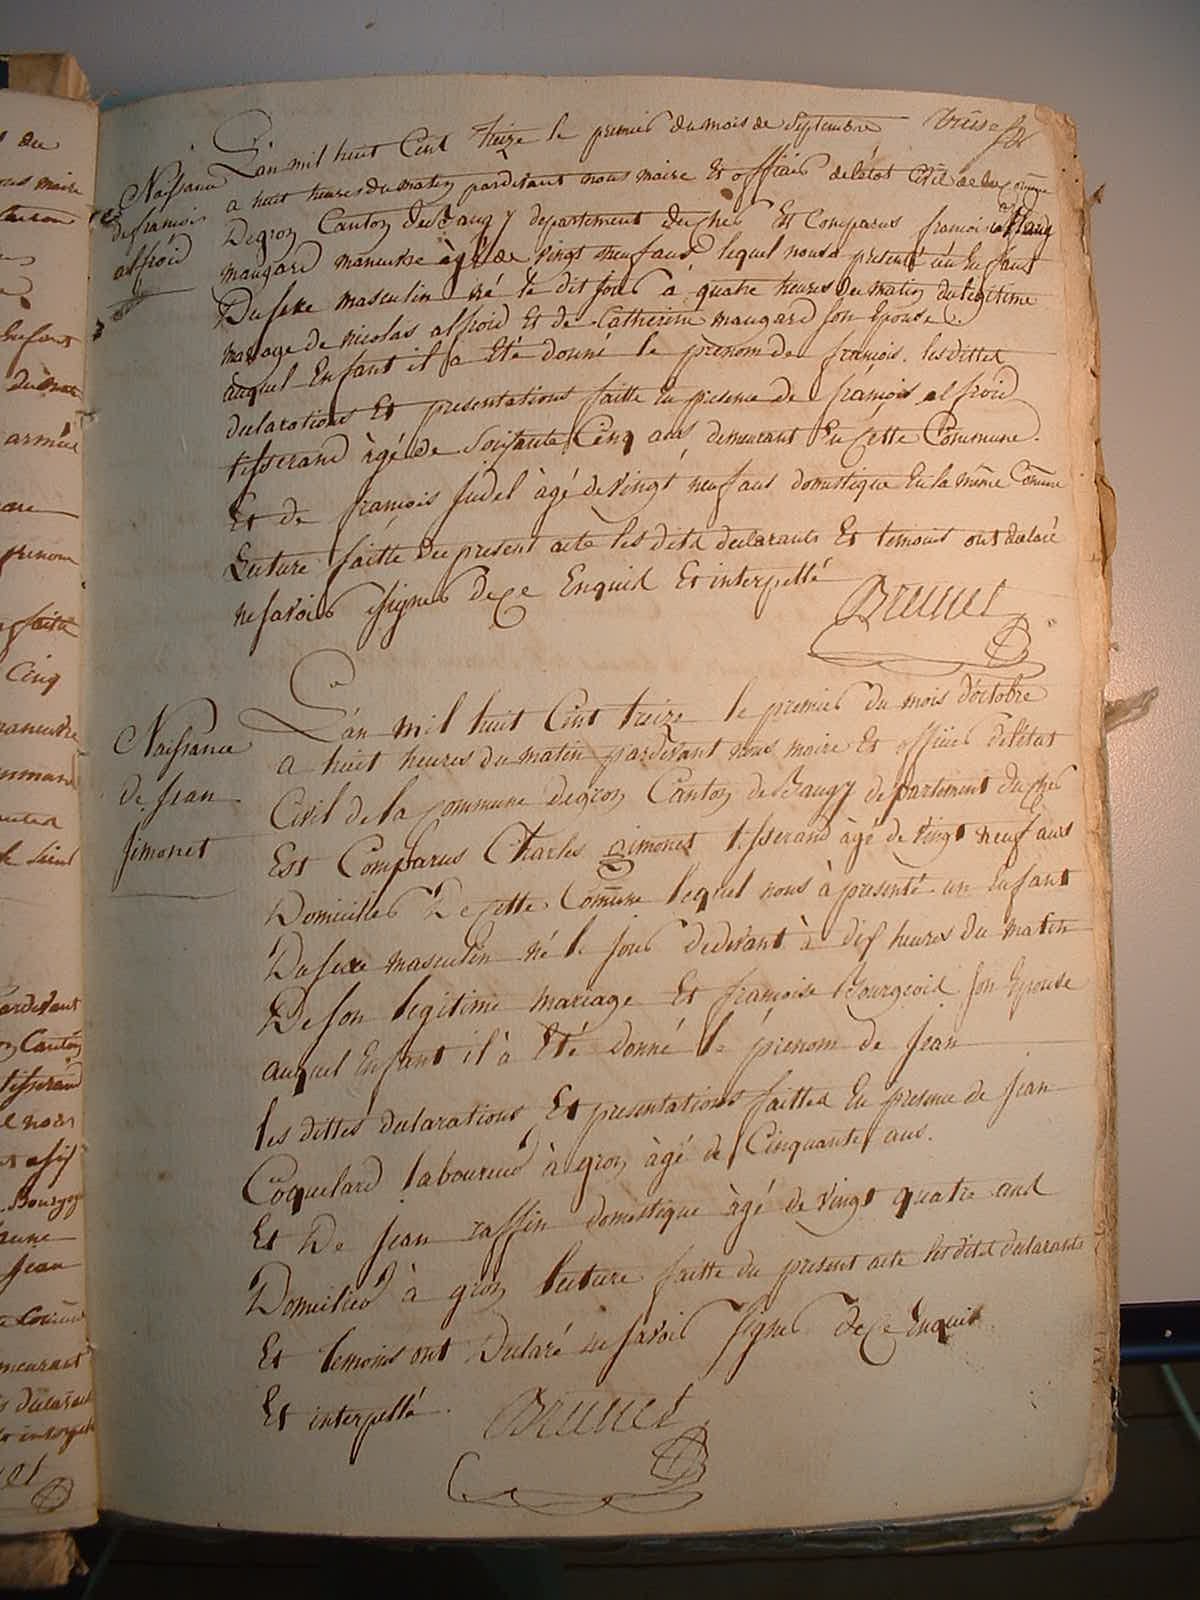 treize
L'an mil huit Cent treize le premier du mois de Septembre
Naissance
de francois
alfroid
a huit heures du matin pardevant nous maire Et officier de létat Civil de la Commune
Degron Canton de Baugy departement du cher Est Comparus francois
maugard maneuvre àgé de vingt neuf ans lequel nous a presenté un Enfant
Du sexe masculin né le dit jour à quatre heures du matin du legitime
mariage de nicolas alfroid Et de Catherine maugard son Epouse.
auquel Enfant il a Eté donné le prénom de françois. les dittes
declarations Et presentations faitte En presence de françois alfroid
tisserand àgé de Soixante Cinq ans demeurant En Cette Commune.
Et de françois judel àgé de vingt neuf ans domestique En la même Comune
Lecture faitte du present acte les dits declarants Et temoins ont declaré
ne savoir signer de ce Enquis Et interpellé
Brunet
Naissance
de jean
simonet
L'an mil huit Cent treize le premier du mois d'octobre
a huit heures du matin pardevant nous maire Et officier de létat
Civil de la Commune degron Canton de Baugy departement du cher
Est Comparus Charles simonet tisserand àgé de vingt neuf ans
Domicilier De Cette Comune lequel nous à presenté un Enfant
Du sexe masculin né le jour dedevant à dix heures du matin
De son legitime mariage Et françoise Bourgeois son Epouse
auquel Enfant il à Eté donné le prénom de jean
les dittes declarations Et presentations faittes En presence de jean
Coquelard laboureur à gron àgé de Cinquante ans.
Et De jean raffin domestique àgé de vingt quatre ans
Domicilier à gron lecture faitte du present acte les dits declarants
Et temoins ont Declaré ne savoir signer de Ce Enquis
Et interpellé.
Brunet